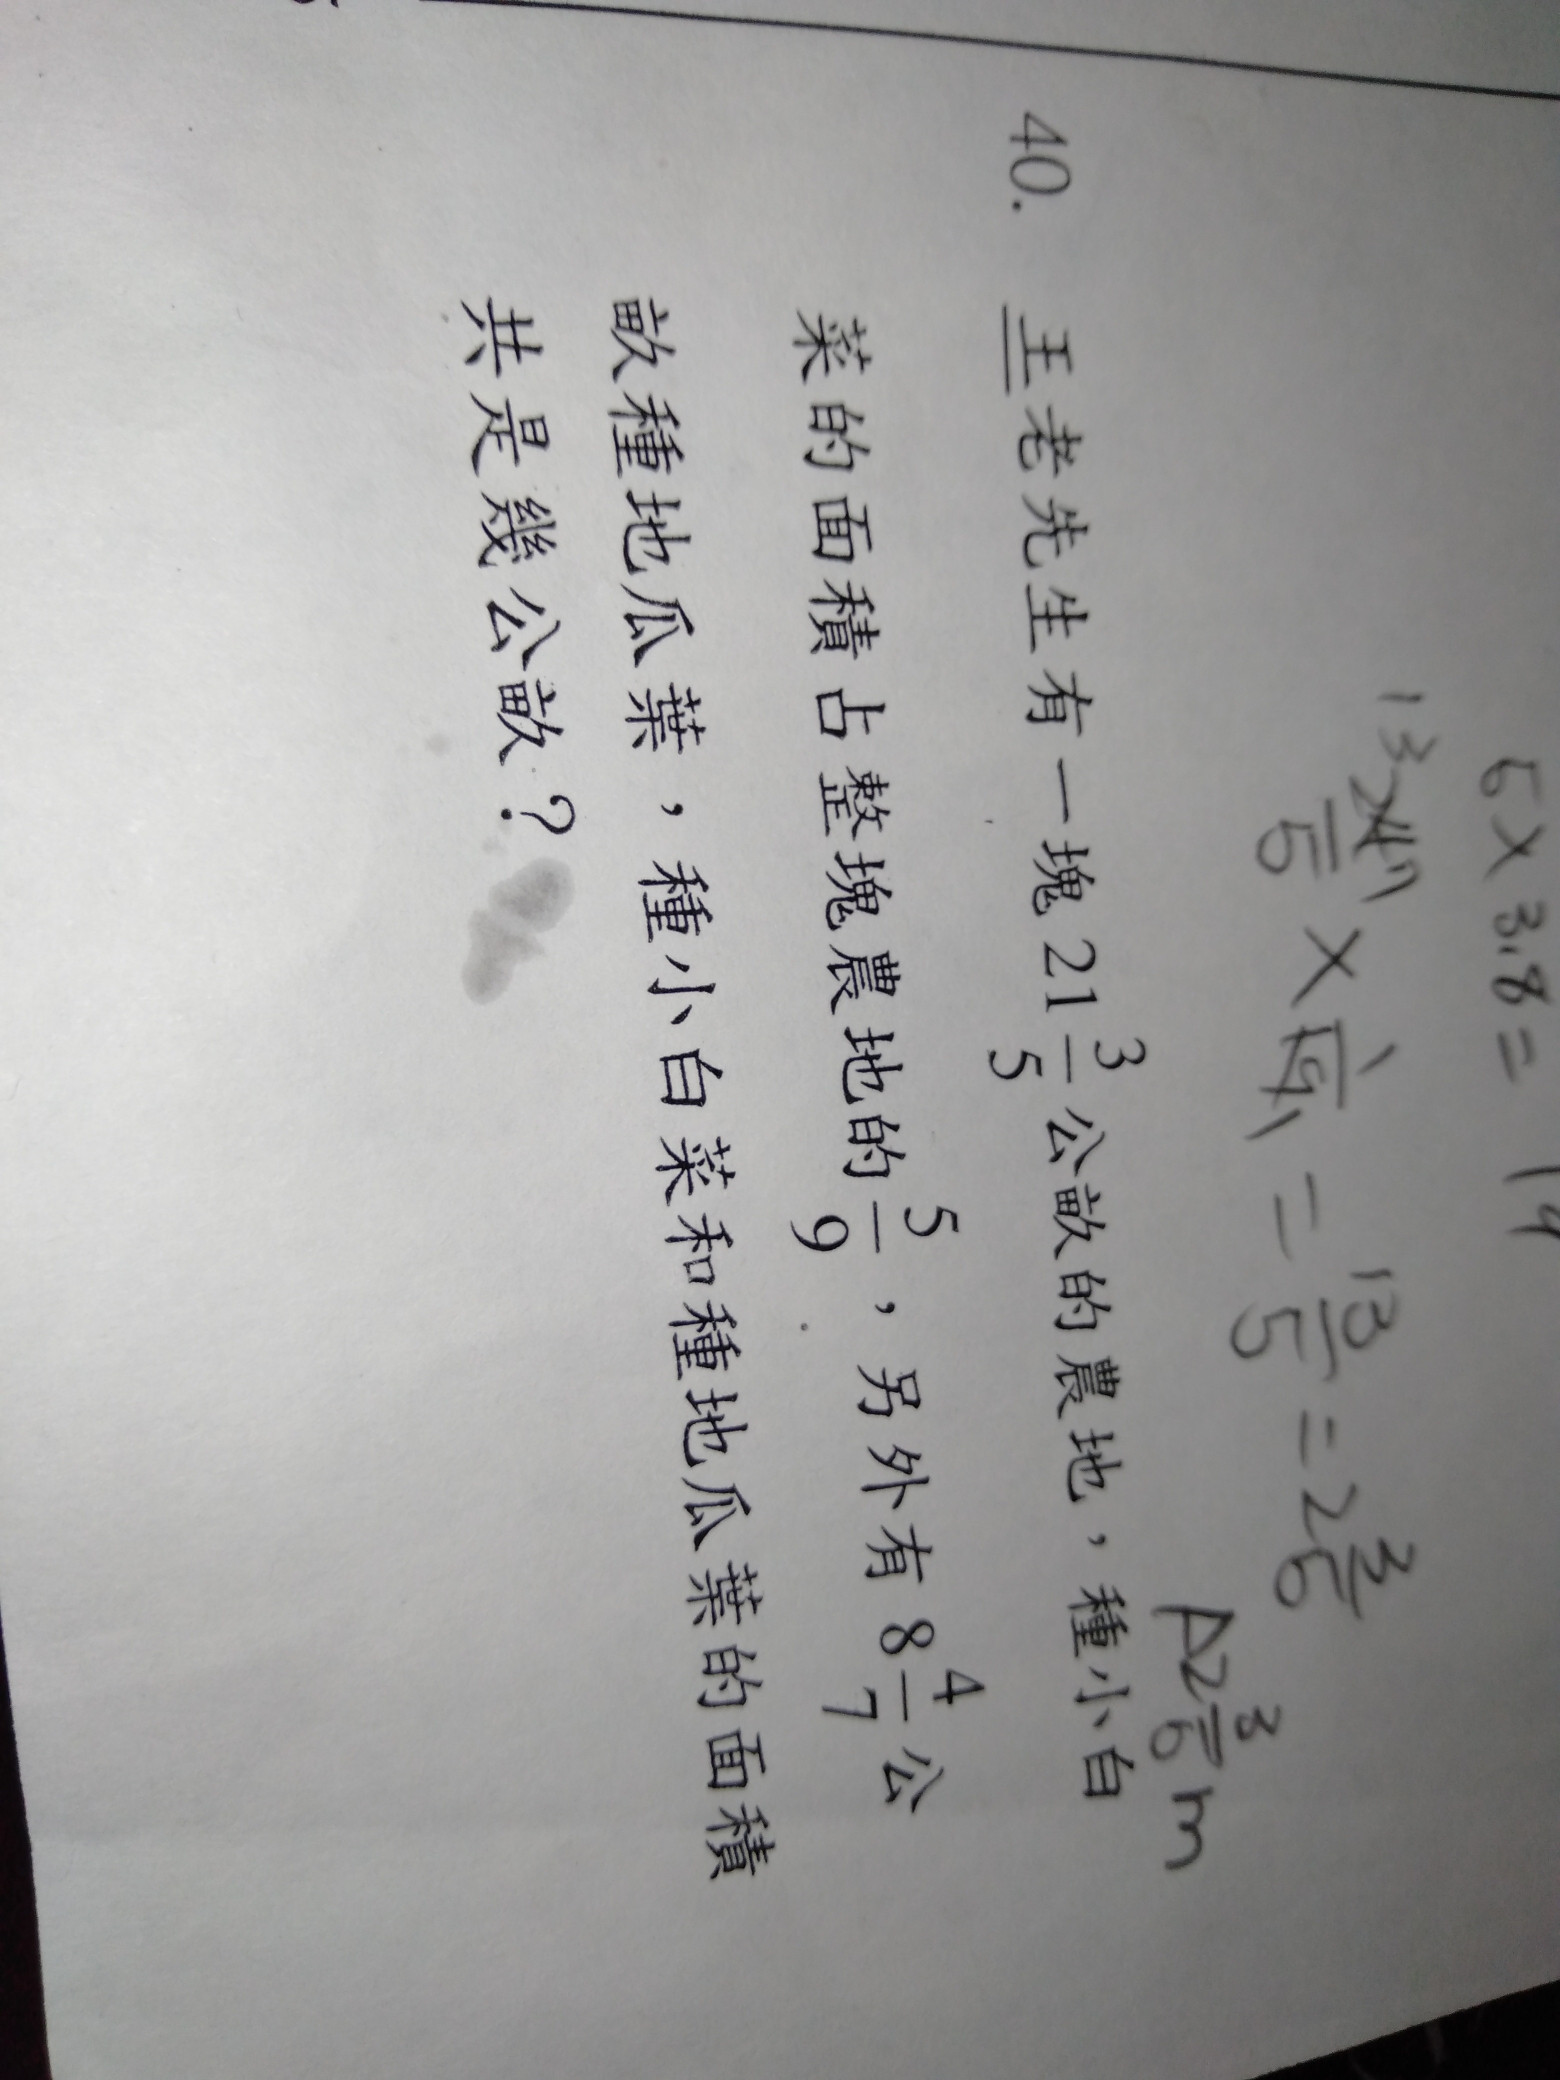 5×3.8= 19
= 13/5 = 2 3/5
A 2 3/5 m
40. 王老先生有一塊 21 3/5 公畝的農地，種小白
菜的面積占整塊農地的 5/9，另外有 8 4/7 公
畝種地瓜葉，種小白菜和種地瓜葉的面積
共是幾公畝？